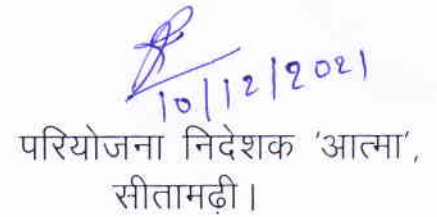 10/12/2021
परियोजना निदेशक 'आत्मा',
सीतामढ़ी।